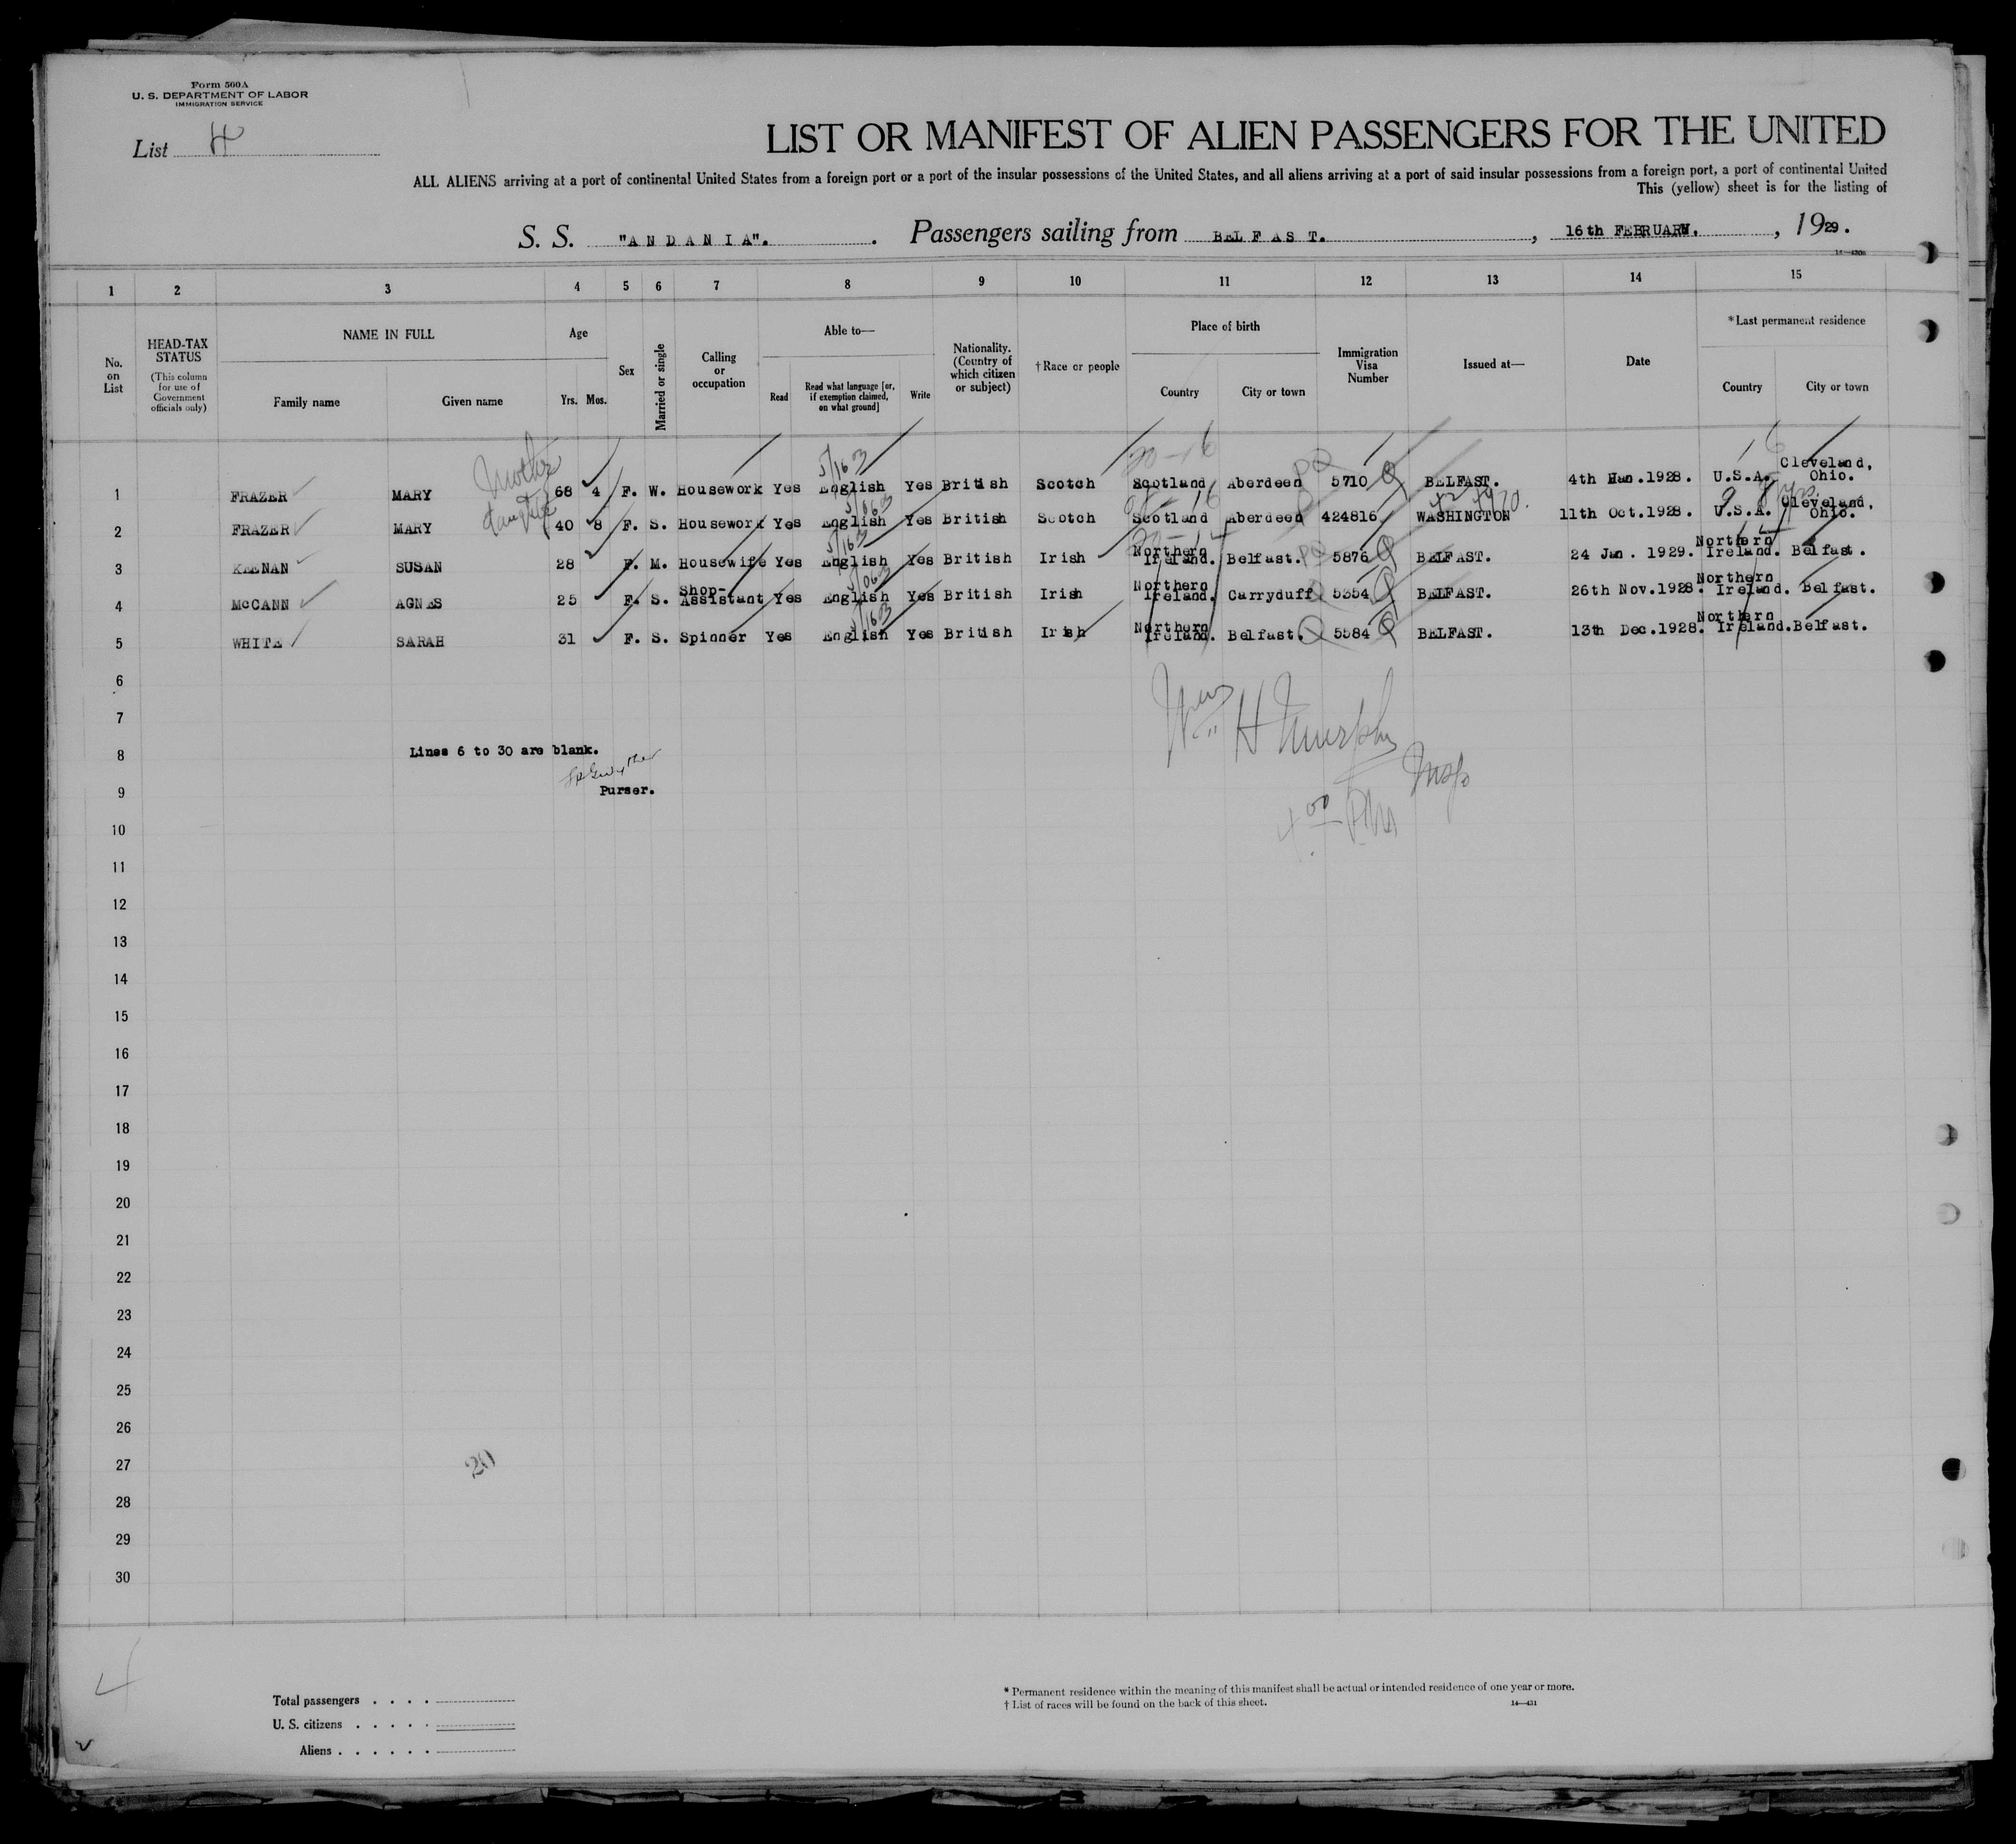 Form 500A
U. S. DEPARTMENT OF LABOR
IMMIGRATION SERVICE
List 4
LIST OR MANIFEST OF ALIEN PASSENGERS FOR THE UNITED
ALL ALIENS arriving at a port of continental United States from a foreign port or a port of the insular possessions of the United States, and all aliens arriving at a port of said insular possessions from a foreign port, a port of continental United
This (yellow) sheet is for the listing of
S. S. "ANDANIA". Passengers sailing from BELFAST. , 16th FEBRUARY. , 1929.
1 2 3 4 5 6 7 8 9 10 11 12 13 14 15
No. on List
HEAD-TAX STATUS
(This column for use of Government officials only)
NAME IN FULL
Family name Given name
Age
Yrs. Mos.
Sex
Married or single
Calling or occupation
Able to—
Read
Read what language [or, if exemption claimed, on what ground]
Write
Nationality. (Country of which citizen or subject)
†Race or people
Place of birth
Country City or town
Immigration Visa Number
Issued at—
Date
*Last permanent residence
Country City or town
Mother
5/163
20-16
1 FRAZER MARY 68 4 F. W. Housework Yes English Yes British Scotch Scotland Aberdeen 5710 BELFAST. 4th Han.1928. U.S.A. Cleveland, Ohio.
daughter
2 FRAZER MARY 40 8 F. S. Housework Yes English Yes British Scotch Scotland Aberdeen 424816 WASHINGTON 11th Oct.1928. U.S.A. Cleveland, Ohio.
5/163
3 KEENAN SUSAN 28 F. M. Housewife Yes English Yes British Irish Northern Ireland. Belfast. 5876 BELFAST. 24 Jan. 1929. Northern Ireland. Belfast.
4 McCANN AGNES 25 F. S. Shop-Assistant Yes English Yes British Irish Northern Ireland. Carryduff 5354 BELFAST. 26th Nov.1928. Northern Ireland. Belfast.
5/163
5 WHITE SARAH 31 F. S. Spinner Yes English Yes British Irish Northern Ireland. Belfast. 5584 BELFAST. 13th Dec.1928. Northern Ireland. Belfast.
6
7
Wm H Murphy
8 Lines 6 to 30 are blank.
Insp
9 Purser.
4 00 PM
10
11
12
13
14
15
16
17
18
19
20
21
22
23
24
25
26
27
20
28
29
30
Total passengers . . . .
U. S. citizens . . . . .
Aliens . . . . . .
* Permanent residence within the meaning of this manifest shall be actual or intended residence of one year or more.
† List of races will be found on the back of this sheet. 14—431